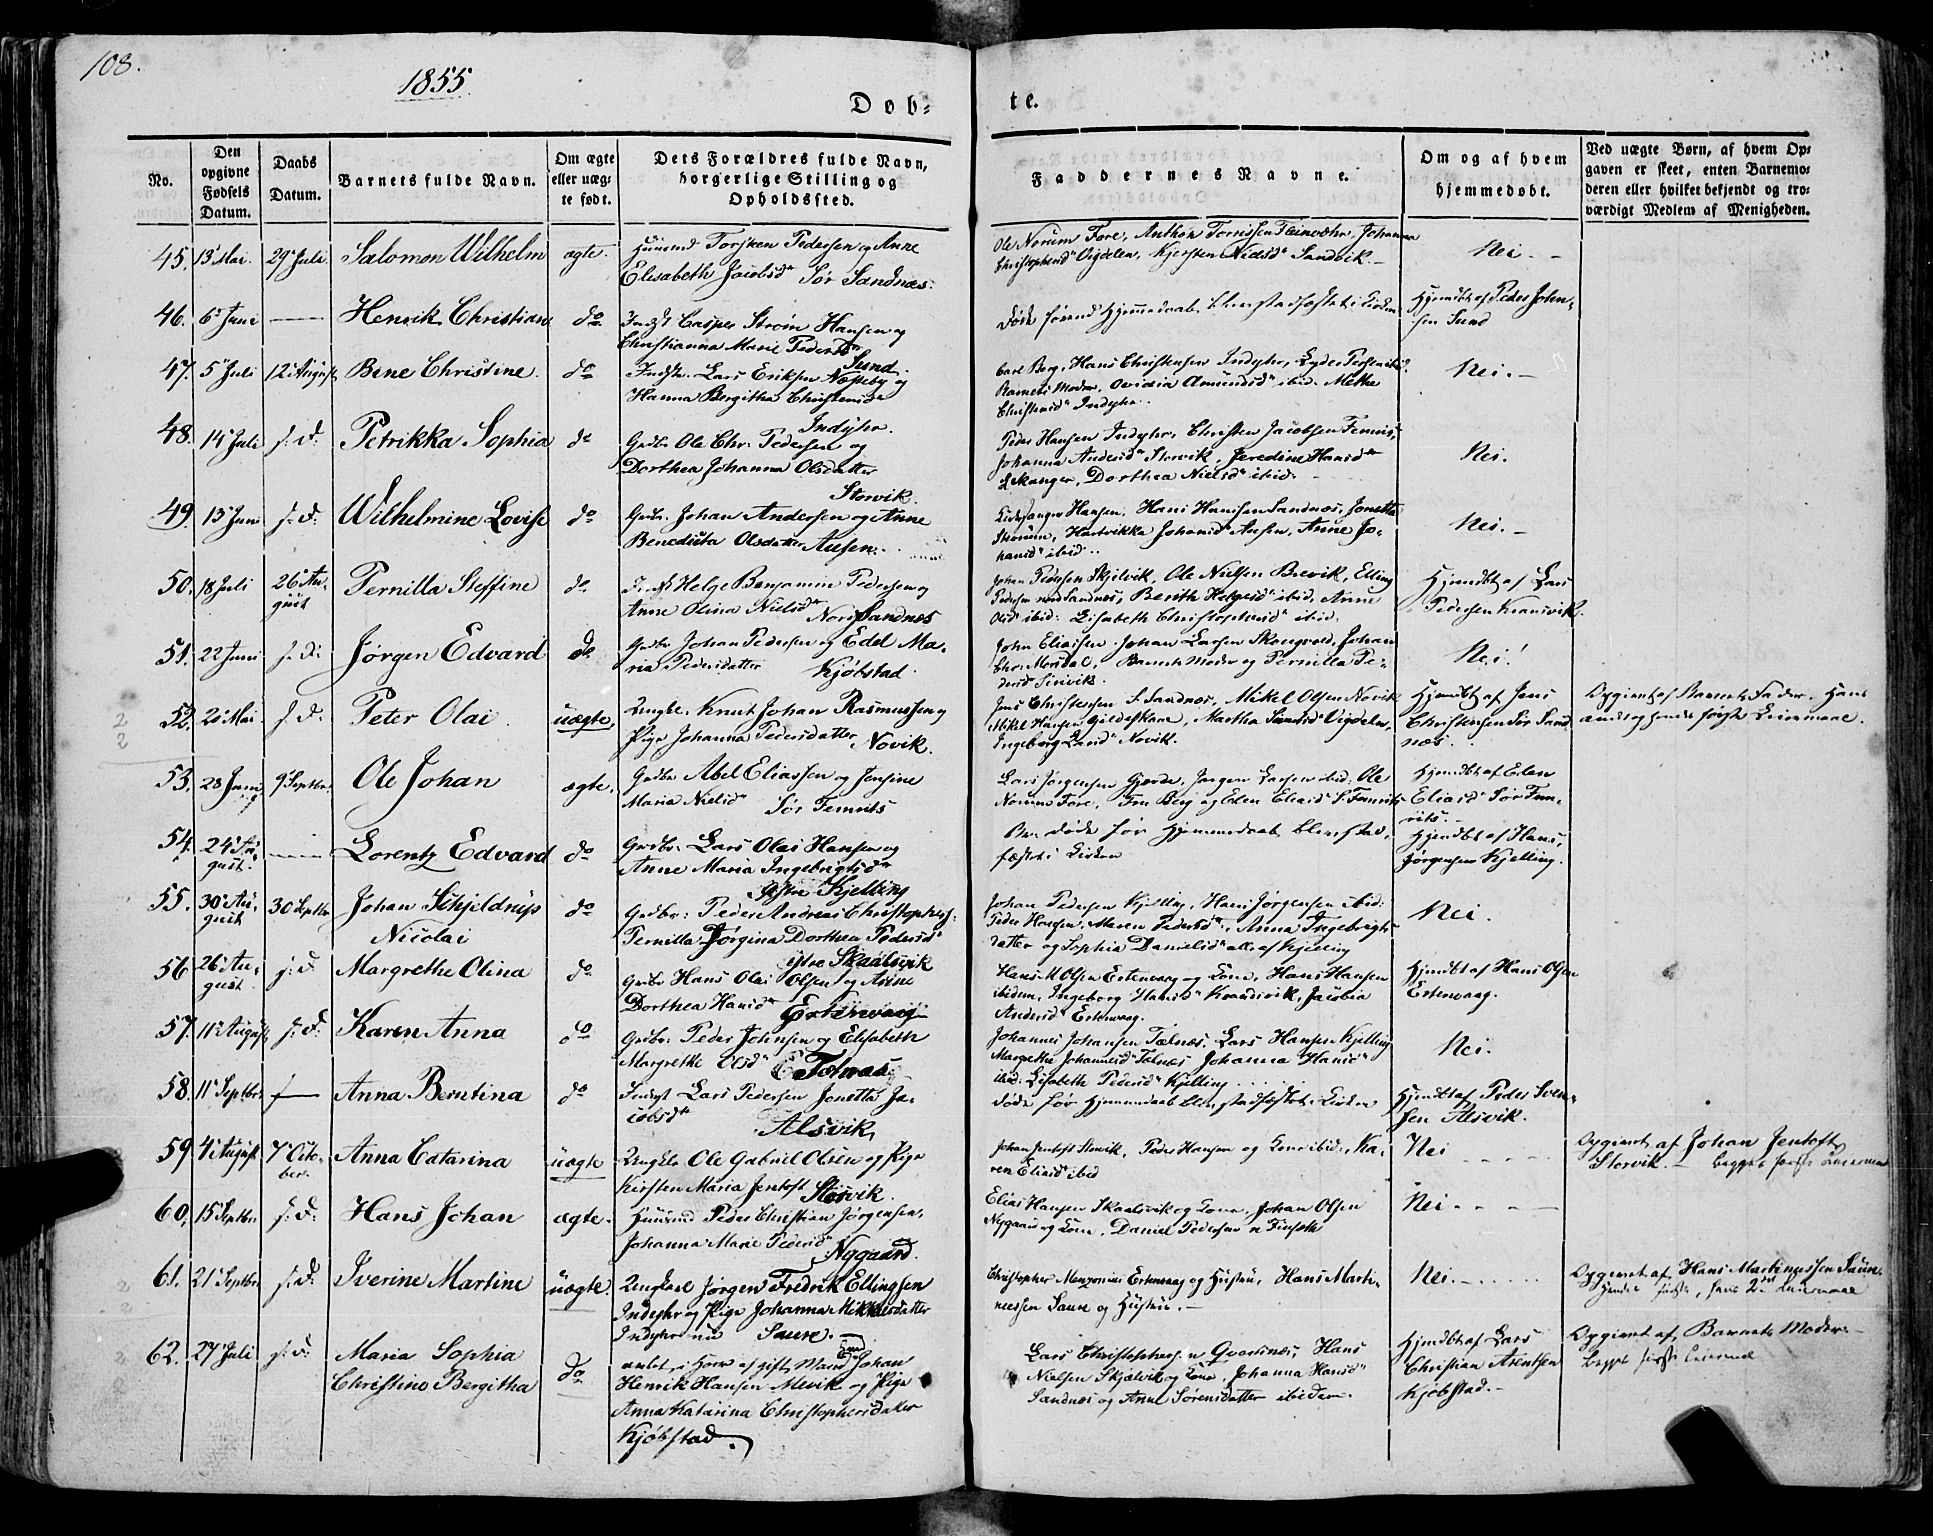 108.
1855
Døb-
te.
No.
Den
opgivne
Fødsels
Datum.
Daabs
Datum.
Barnets fulde Navn.
Om ægte
eller uæg-
te født.
Dets Forældres fulde Navn,
borgerlige Stilling og
Opholdssted.
Faddernes Navne.
Om og af hvem
hjemmedøbt.
Ved uægte Børn, af hvem Op-
gaven er skeet, enten Barnemo-
deren eller hvilket bekjendt og tro-
værdigt Medlem af Menigheden.
45. 13 Mai. 29 Juli. Salomon Wilhelm ægte.
Torsken Pedersen og Anne
Elisabeth Jacobsd Sør Sandnæs.
Ole Norum Fore, Anthon Torrissen Johanna
Christophersd Vigdelen, Kjersten Nielsd Sandvik.
Nei.
46. 6 Juni Henrik Christian do
Indst Casper Strøm Hansen og
Christianna Marie Pedersd
Sund.
Døde førend Hjemmedaab blev stadfæstet i Kirken
Hjemdbt af Peder John-
sen Sund
47. 5 Juli 12 August Bene Christine do
Indst. Lars Eriksen Næseby og
Hanna Bergitha Christensd
Indyhr.
Carl Berg, Hans Christensen Indyhr,
Barnets Moder, Amundsd ibid. Methe
Christensd Indyhr.
Nei.
48. 14 Juli s. d. Petrikka Sophia do
Grdbr Ole Chr. Pedersen og
Dorthea Johanna Olsdatter
Storvik.
Peder Hansen Indyhr, Christen Jacobsen
Johanna Andersd Storvik, Hansd
Dorthea Nielsd ibid.
Nei.
49. 13 Juni s. d. Wilhelmine Lovise do
Grdbr. Johan Andersen og Anne
Benedicta Olsdatter Ausen.
Kirkesanger Hansen, Hans Hansen Sandnæs, Jonetta
Hartvikka Johansd Ausen, Anne Jo-
hansd ibid.
Nei.
50. 18 Juli 26 Au-
gust Pernilla Steffine do
Indst Helge Benjamin Pedersen og
Anne Olina Nielsd Nord Sandnæs
Johan Pedersen Skjelvik, Ole Nielsen Brevik, Elling
Pedersen nord Sandnæs, Berith Helgesd ibid, Anne
Olsd ibid. Elisabeth Christophersd ibid.
Hjemdbt af Lars
Pedersen
51. 22 Juni s. d. Jørgen Edvard do
Grdbr Johan Pedersen og Edel Ma-
ria Pedersdatter Kjøbstad.
John Eliassen Johan Larsen Johan
Chr. Mørsdal, Barnets Moder og Pernilla Pe-
dersd
Nei!
52. 20 Mai s. d. Peter Olai. uægte,
Ungkl. Knut Johan Rasmussen og
Pige Johanna Pedersdatter Novik.
Jens Christensen S. Sandnæs, Mikel Olsen Novik
Mikel Hansen Gildeskaal, Martha Vigdelen,
Ingeborg Larsd Novik.
Hjemdbt af Jens
Christensen Sør Sand
næs.
Opgivet af Barnets Fader. Hans
andet og hendes første Leiermaal.
53. 28 Juni 9 Septbr. Ole Johan ægte.
Grdbr Abel Eliassen og Jensine
Maria Nielsd Sør
Lars Jørgensen Gjerde, Jørgen Larsen ibid. Ole
Norum Fore, Fru Berg og Elen Eliasd S.
Hjemdbt af Elen
Eliasd Sør
54. 24 Au-
gust. Lorentz Edvard do
Grdbr. Lars Olai Hansen og
Anne Maria Ingebrigtsd
østre Kjelling
døde før Hjemmedaab blev stad-
fæstet i Kirken
Hjemdbt af Hans
Jørgensen Kjelling.
55. 30 Au-
gust 30 Septbr. Johan Schjeldrup
Nicolai do
Grdbr. Peder Andreas Christophers.
Pernilla Jørgina Dorthea Pedersd
østre Skaalsvik
Johan Pedersen Kjelling, Hans Jørgensen ibid.
Peder Hansen, Maren Pedersd, Anna Ingebrigts
datter og Sophia Danielsd alle af Kjelling
Nei.
56. 26 Au-
gust. s. d. Margrethe Olina do
Grdbr Hans Olai Olsen og Anne
Dorthea Hansd Ertenvaag
Hans M Olsen Ertenvaag og Kone, Hans Hansen
ibidem, Ingeborg Hansd Jacobia
Andersd Ertenvaag.
Hjemdbt af Hans Olsen
Ertenvaag.
57. 11 August s. d. Karen Anna do
Grdbr. Peder Johnsen og Elisabeth
Margrethe Olsd Tælnæs
Johannes Johansen Tælnæs, Lars Hansen Kjelling
Margrethe Johannesd Tælnæs Johanna Hansd
ibid. Elisabeth Pedersd Kjelling
Nei.
58. 11 Septbr. Anna Berntina do
Indst Lars Pedersen Jonetta Ja-
cobsd Alsvik
døde før Hjemmedaab blev stadfæstet i Kirken
Hjemdbt af Peder Sven-
sen Alsvik.
59. 4 August 7 Octo-
ber. Anna Catarina uægte
Ungkl Ole Gabriel Olsen og Pige
Kirsten Maria Jentoft Storvik.
Johan Jentoft Storvik, Peder Hansen og Kone ibid., Ka-
ren Eliasd ibid
Nei
Opgivet af Johan Jentoft
Storvik. Begges første Leiermaal
60. 15 Septbr. s. d. Hans Johan ægte.
Huusmd Peder Christian Jørgensen,
Johanna Marie Pedersd Nygaard.
Elias Hansen Skaalsvik og Kone, Johan Olsen
Nygaard og Kone, Daniel Pedersen
Nei
61. 21 Septbr s. d. Iverine Martine uægte.
Ungkarl Jørgen Fredrik Ellingsen
Indyhr og Pige Johanna Mikkelsdatter
Indyhr nu Saure.
Christopher Ertenvaag og Hustru, Hans Marti-
neussen Saure og Hustru.
Nei.
Opgivet af Hans Martinussen Saure.
Hendes første, hans 2det Leiermaal
62. 27 Juli s. d. Maria Sophia
Christine Bergitha do
avlet i Hoer af gift Mand Johan
Henrik Hansen Alsvik og Pige
Anna Katarina Christophersdatter
Kjøbstad.
Lars Christophersen Hans
Nielsen Skjælvik og Kone, Johanna Hansd
Sandnæs og Anne Sørensdatter ibidem.
Hjemdbt af Lars
Christian Arentsen
Kjøbstad.
Opgivet af Barnets Moder.
Begges første Leiermaal